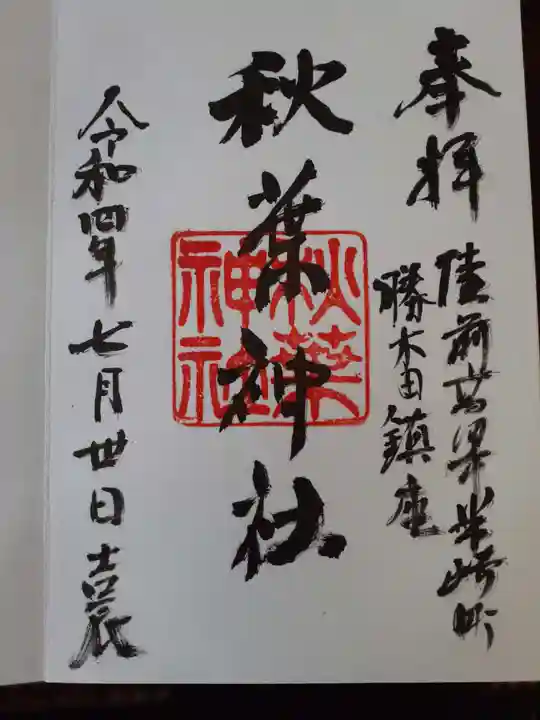 奉拝
陸前高梁米崎町
勝木田鎮座
秋葉神社
秋葉神社
令和四年七月丗日吉農